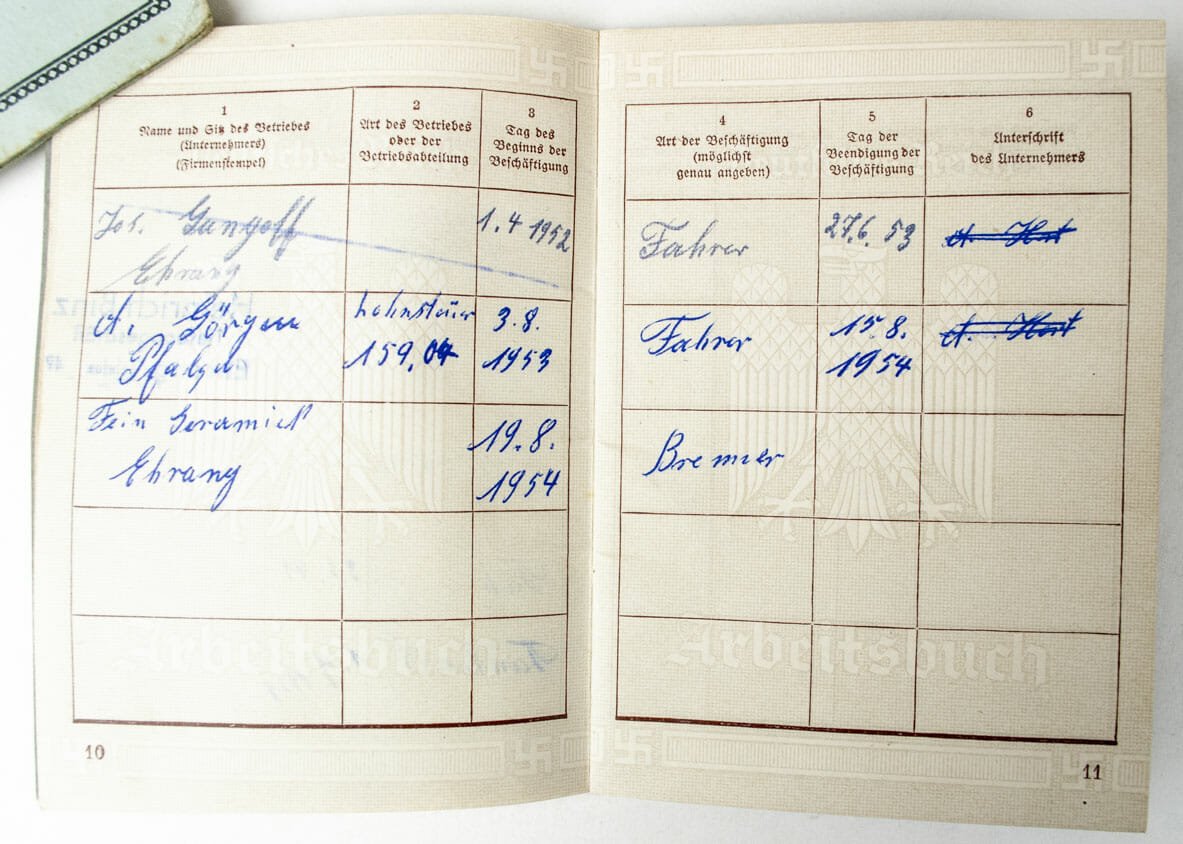 1
Name und Sitz des Betriebes
(Unternehmers)
(Firmenstempel)
2
Art des Betriebes
oder der
Betriebsabteilung
3
Tag des
Beginns der
Beschäftigung
4
Art der Beschäftigung
(möglichst
genau angeben)
5
Tag der
Beendigung der
Beschäftigung
6
Unterschrift
des Unternehmers
Jos.
Ehrang
1.4 1952
Fahrer
27.6. 53
A. Görgen
Pfalzel
Lohnsteuer
159,04
3.8.
1953
Fahrer
15.8.
1954
Fein Keramick
Ehrang
19.8.
1954
Brenner
Arbeitsbuch
Arbeitsbuch
10
11